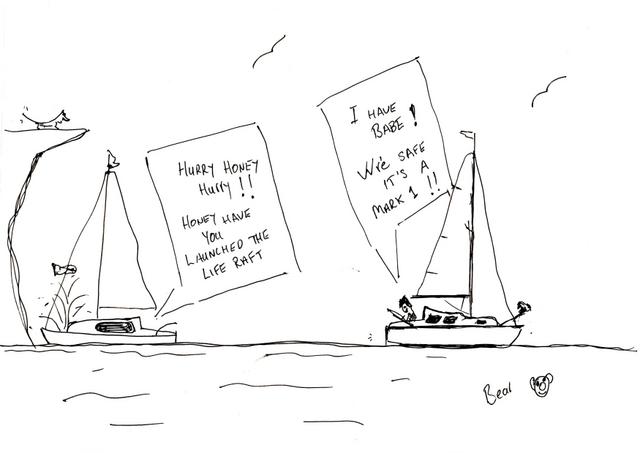 HURRY HONEY
HURRY !!
HONEY HAVE
YOU
LAUNCHED THE
LIFE RAFT
I HAVE
BABE!
WE'e SAFE
IT'S A
MARK 1 !!
Bear